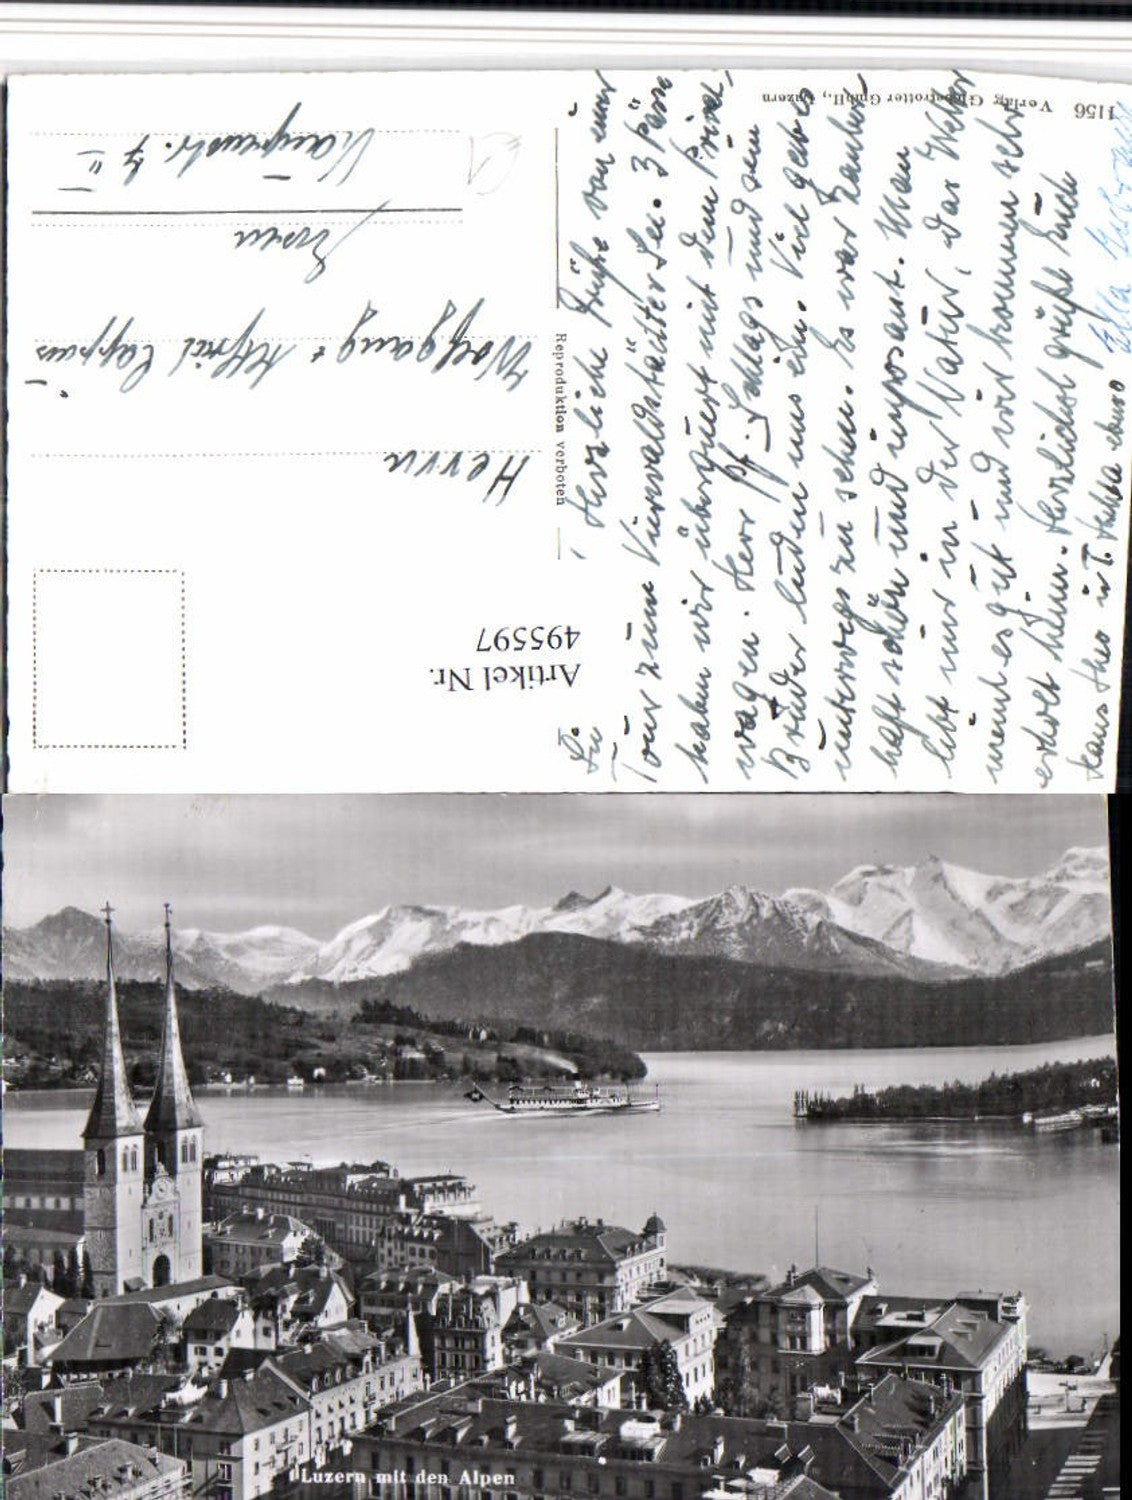 4156 Verlag Globetrotter GmbH., Luzern
Herzliche Grüße von einer
Tour zum Vierwaldstätter See. 3 Pässe
haben wir überquert mit dem Privat-
wagen. Herr Pf. Schlags und sein
Bruder luden uns ein. Viel gab es
unterwegs zu sehen. Es war zauber-
haft schön und imposant. Man
lebt nur in der Natur, das Wetter
meint es gut und wir kommen sehr
erholt heim. Herzlichst grüßt Euch
Hans Theo u. T. Hulda ebenso
Ella
Reproduktion verboten
Artikel Nr.
495597
Herrn
Wolfgang + Alfred Cappius
Essen
II
Luzern mit den Alpen